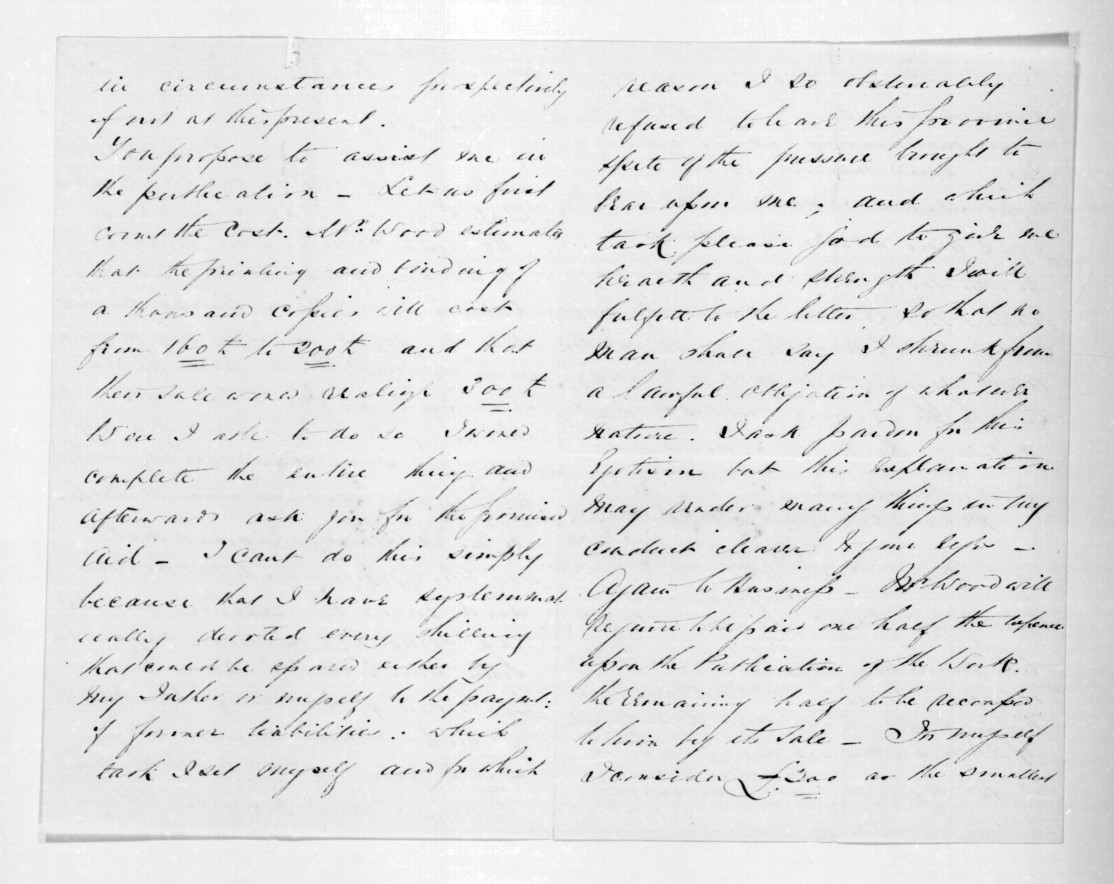 in circumstances prospectively
if not at this present.
You propose to assist me in
the publication - Let us first
count the Cost. Mr. Wood estimates
that the printing and binding of
a thousand copies will cost
from 160£ to 200£ and that
their sale would realize 300£
Were I able to do so I would
complete the entire thing and
afterwards ask you for the promised
aid - I cant do this simply
because that I have systemmat
ically devoted every shilling
that could be spared either by
my Father or myself to the paymt:
of former liabilities: which
task I set myself and for which
reason I so obstinately
refused to leave this province
spite of the pressure brought to
bear upon me; and which
task please God to give me
health and strength I will
fulfill to the letter so that no
man shall say I shrunk from
a lawful obligation of whatever
nature. I ask pardon for this
Egotism but this explanation
may render many things in my
conduct clearer to your
Again to Business - Mr Wood will
require to be paid one half the expence
upon the Publication of the Work.
the remaining half to be
to him by its sale - For myself
I consider £300 as the smallest